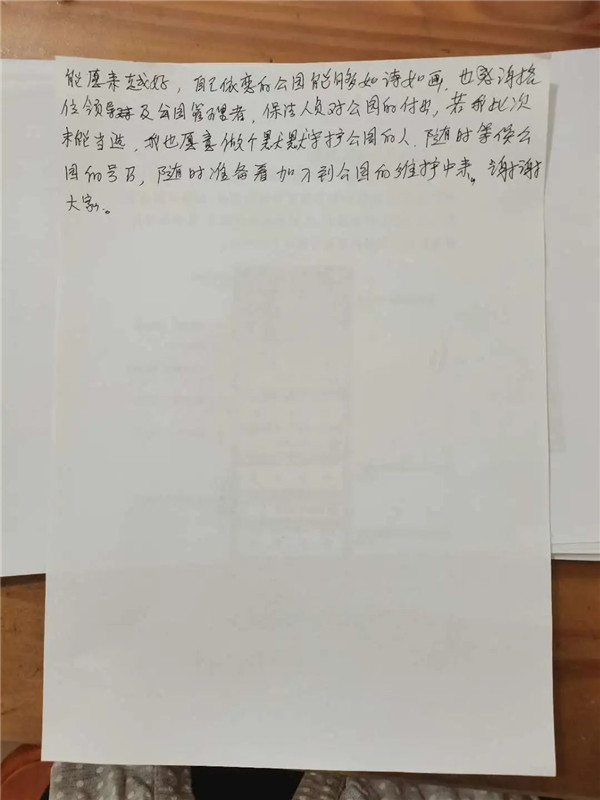 能愿来越好，自己依恋的公园能够如诗如画，也感谢给
位领导及公园管理者，保洁人员对公园的付出，若我此次
未能当选，我也愿意做个默默守护公园的人，随时等候公
园的号召，随时准备着加入到公园的维护中来。谢谢
大家。